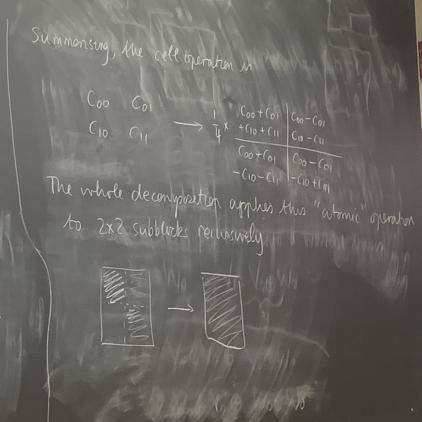 Summarising, the cell operation is
C00 C01
C10 C11
→ 1/4 ×
C00 + C01 + C10 + C11 | C00 - C01 C10 - C11
C00 + C01 - C10 - C11 | C00 - C01 - C10 + C11
The whole decomposition applies this "atomic" operation
to 2x2 subblocks recursively
→